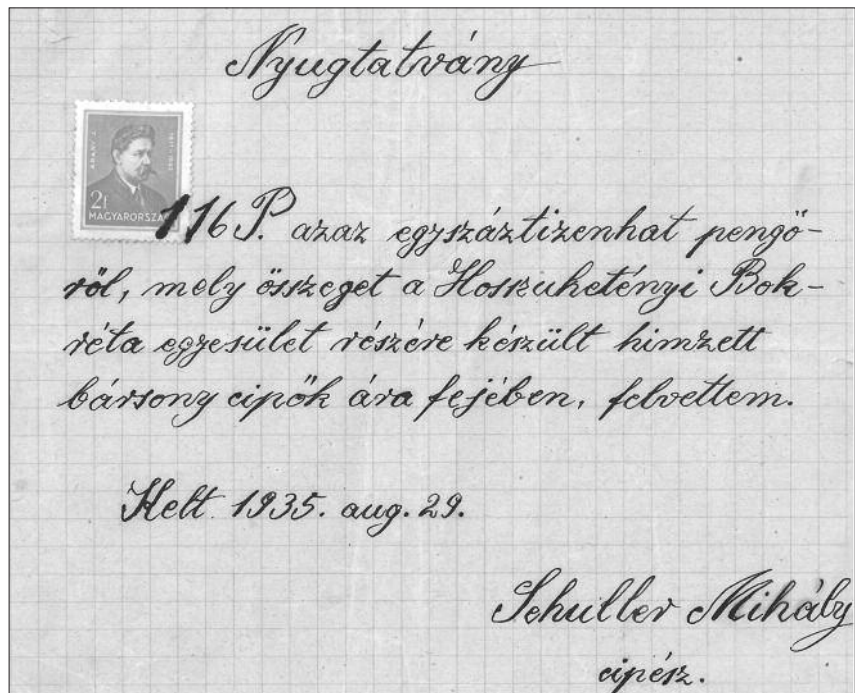 Nyugtatvány
ARANY J.
2f
MAGYARORSZÁG
116 P. azaz egyszáztizenhat pengő-
ről, mely összeget a Hosszuhetényi Bok-
réta egyesület részére készült himzett
bársony cipők ára fejében, felvettem.
Kelt 1935. aug. 29.
Schuller Mihály
cipész.